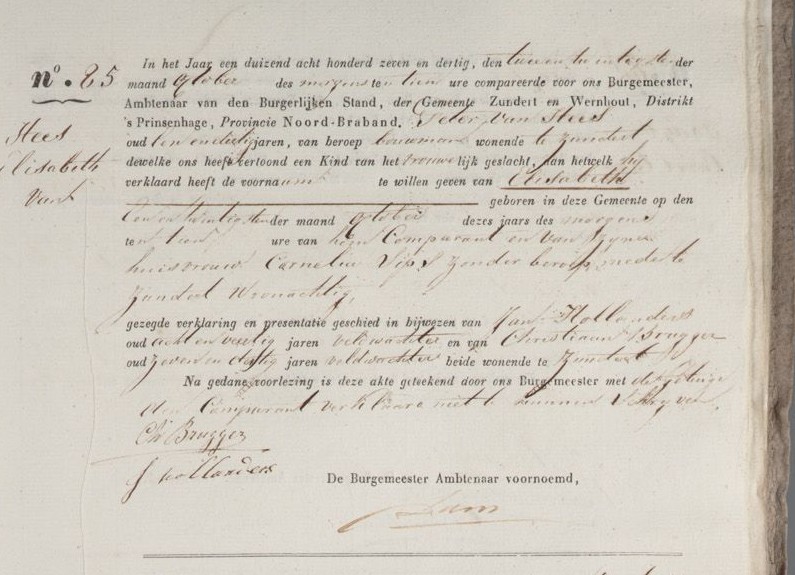 nº. 85
Hees
Elisabeth
van
In het Jaar een duizend acht honderd zeven en dertig, den twee en twintigsten der
maand october des morgens te tien ure compareerde voor ons Burgemeester,
Ambtenaar van den Burgerlijken Stand, der Gemeente Zundert en Wernhout, Distrikt
's Prinsenhage, Provincie Noord-Braband. Peter van Hees
oud een en dertig jaren, van beroep bouwman wonende te Zundert
dewelke ons heeft vertoond een Kind van het vrouwelijk geslacht, aan hetwelk hij
verklaard heeft de voornaam te willen geven van Elisabeth
geboren in deze Gemeente op den
een en twintigsten der maand october dezes jaars des morgens
te tien ure van hem Comparant en van zyne
huisvrouw Cornelia Vips zonder beroep, mede te
Zundert woonachtig,
gezegde verklaring en presentatie geschied in bijwezen van Jan Hollanders
oud acht en veertig jaren veldwachter en van Christiaan Brugger
oud zeven en dertig jaren veldwachter beide wonende te Zundert
Na gedane voorlezing is deze akte geteekend door ons Burgemeester met de getuige
den Comparant verklaard niet te kunnen schryven
Ch Brugger
J Hollanders
De Burgemeester Ambtenaar voornoemd,